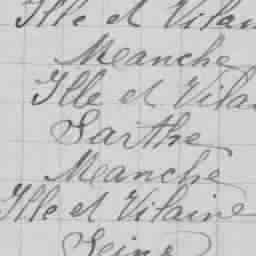 Ille et Vilain
Manche
Ille et Vila
Sarthe
Manche
Ille et Vilaine
Seine